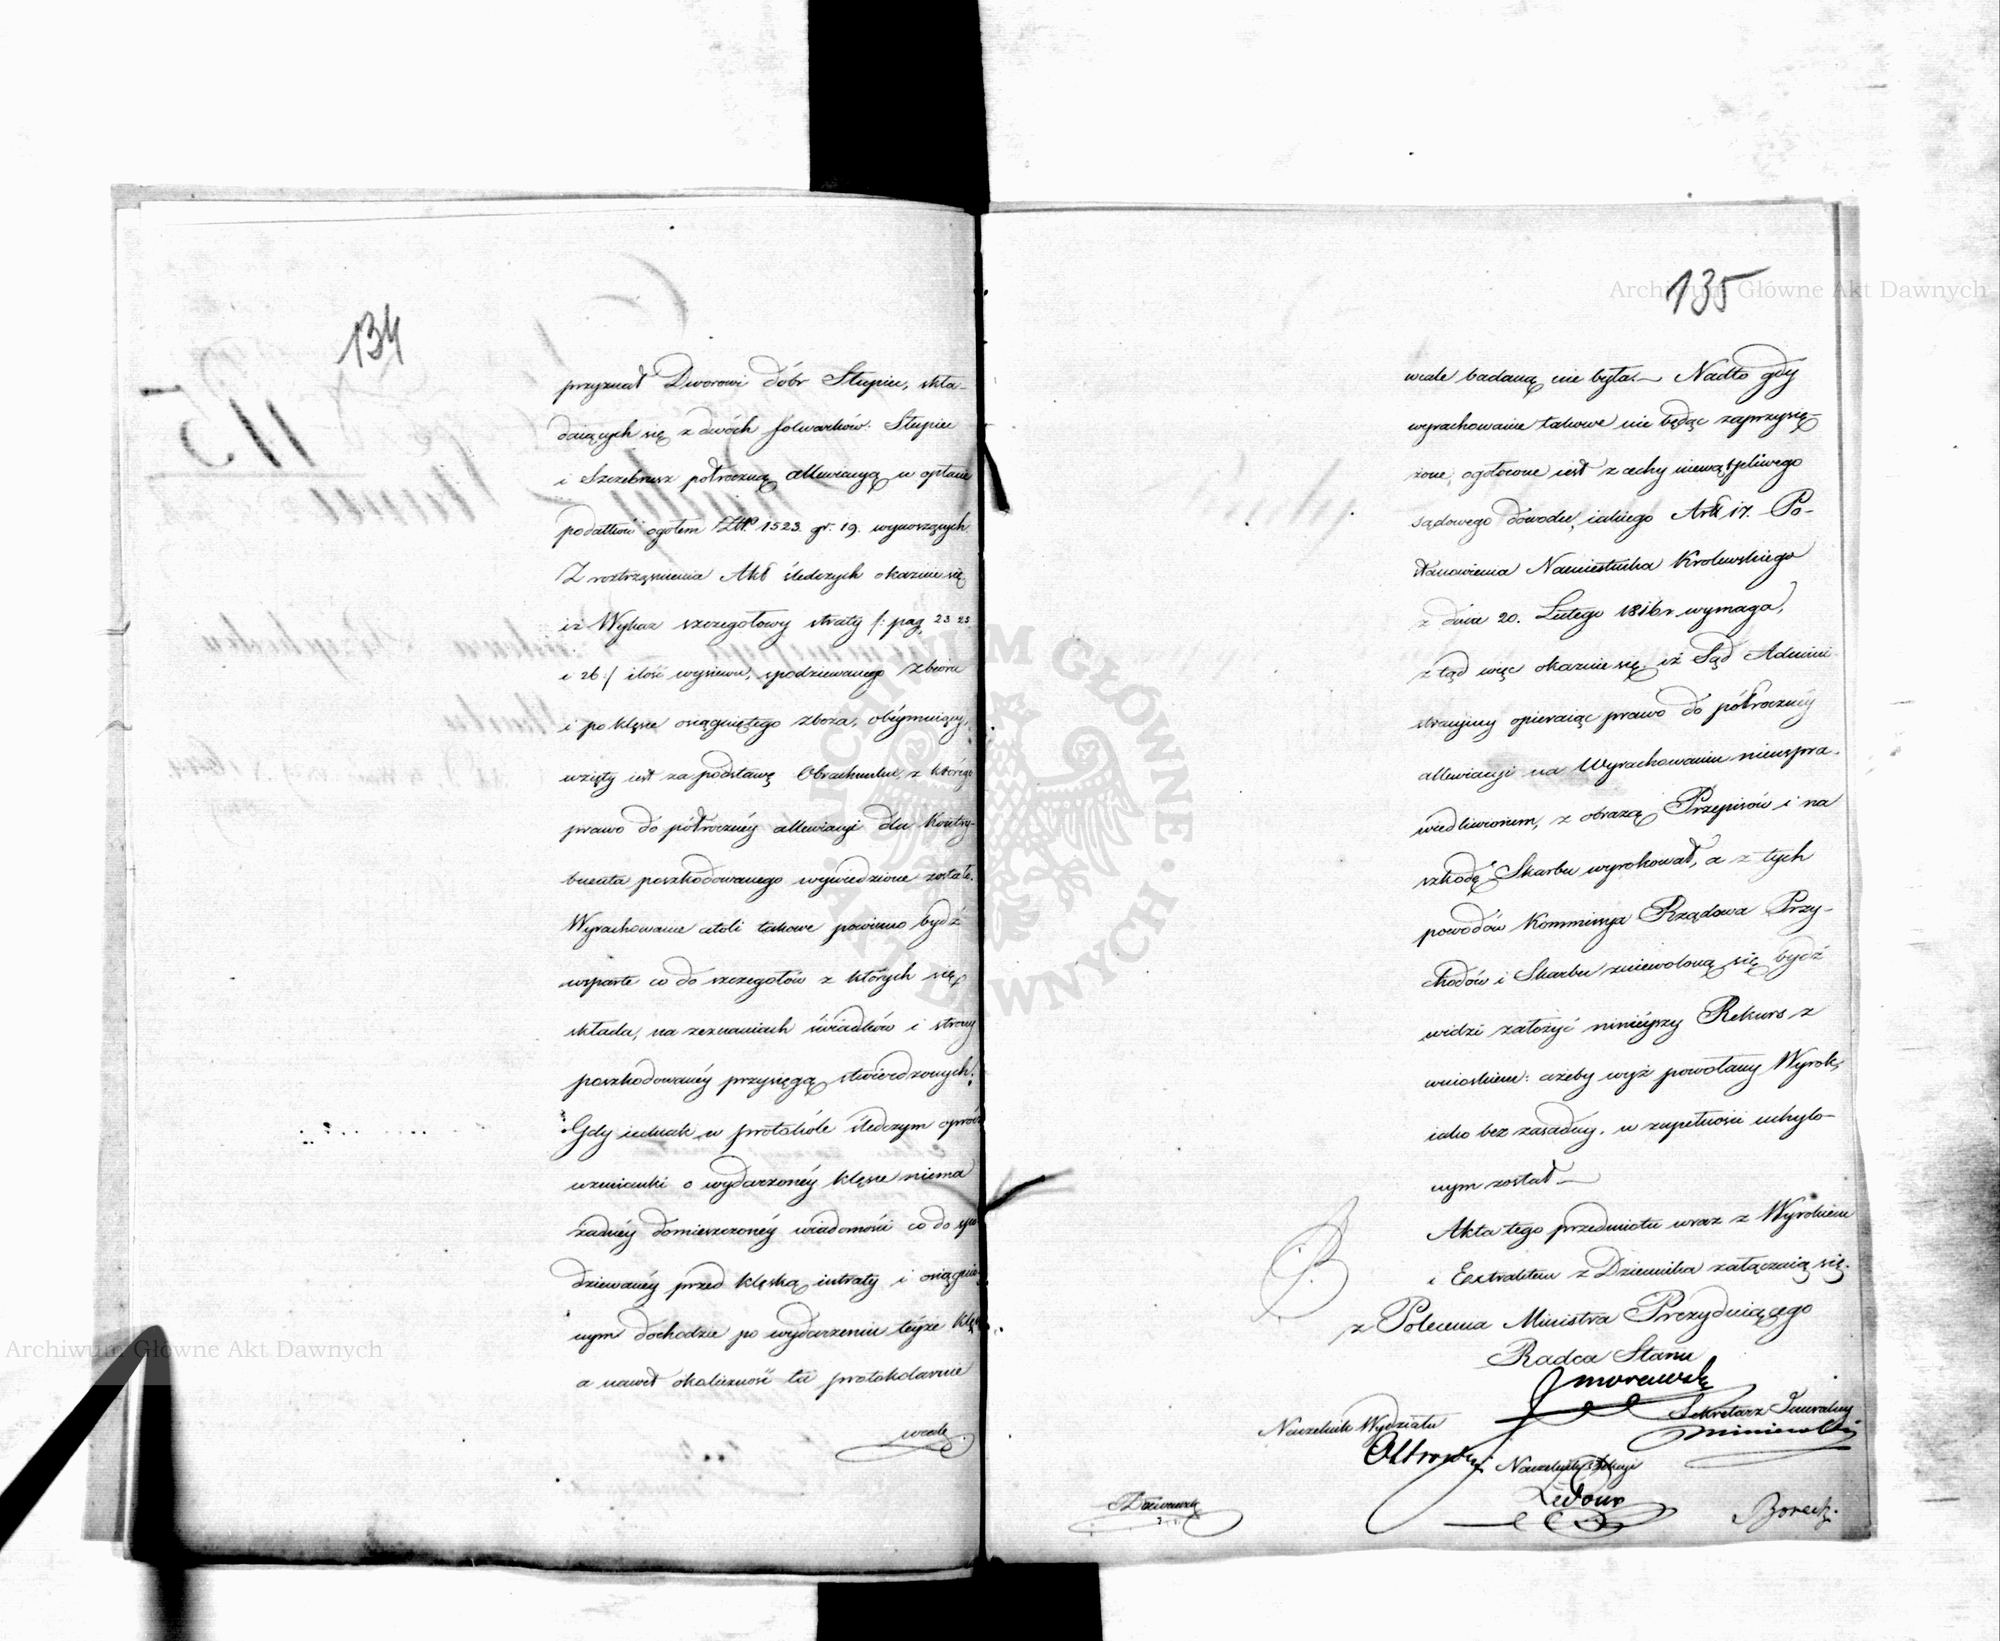 134
przyznał Dworowi dóbr Słupiec, skła-
daiących się z dwóch folwarków: Słupiec
i Szczebrusz półroczną allewiacyą w opłacie
podatków ogołem Złt. 1523 gr. 19. wynoszących
Z roztrząśnienia Akt śledczych okazuie się
iż Wykaz szczegołowy straty /: pag. 23
i 26 :/ ilość wysiewu, spodziewanego zbioru
i po klęsce osiągniętego zboża, obéymuiący,
wzięty iest za podstawę Obrachunku, z którego
prawo do półrocznéy allewiacyi dla Kontry-
buenta poszkodowanego wywiedzione zostało.
Wyrachowanie atoli takowe powinno bydź
wsparte co do szczegołów z których się
składa, na zeznaniach świadków i strony
poszkodowanéy przysięgą stwierdzonych.
Gdy iednak w protokóle śledczym oprócz
wzmianki o wydarzonéy klęsce niema
żadnéy domieszczonéy wiadomości co do spo
dziewanéy przed klęską intraty i osiągnio
nym dochodzie po wydarzeniu teyże klęs
a nawet okoliczność ta protokolarnie
wcale
135
wcale badaną nie była. Nadto gdy
wyrachowanie takowe nie będąc zaprzysię-
żone, ogołocone iest z cechy niewątpliwego
sądowego dowodu, iakiego Artł 17. Po-
stanowienia Namiestnika Krolewskiego
z dnia 20. Lutego 1816 r wymaga,
z tąd więc okazuie się, iż Sąd Admini-
stracyiny opieraiąc prawo do półrocznéy
allewiacyi na Wyrachowaniu nieuspra-
wiedliwionem, z obrazą Przepisów i na
szkodę Skarbu wyrokował, a z tych
powodów Kommissya Rządowa Przy-
chodów i Skarbu zniewoloną się bydź
widzi założyć ninieyszy Rekurs z
wnioskiem: ażeby wyż powołany Wyrok,
iako bez zasadny, w zupełności uchylo-
nym został
Akta tego przedmiotu wraz z Wyrokiem
i Extraktem z Dziennika załączaią się.
z Polecenia Ministra Prezyduiącego
Radca Stanu
Naczelnik Wydziału
Sekretarz Jeneralny
Naczelnik Sekcyi
Archiwum Główne Akt Dawnych
Archiwum Główne Akt Dawnych
ARCHIWUM GŁÓWNE · AKT DAWNYCH ·